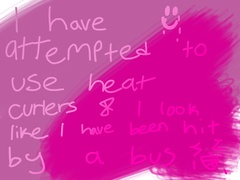 I have
attempted to
use heat
curlers & I look
like I have been hit
by a bus